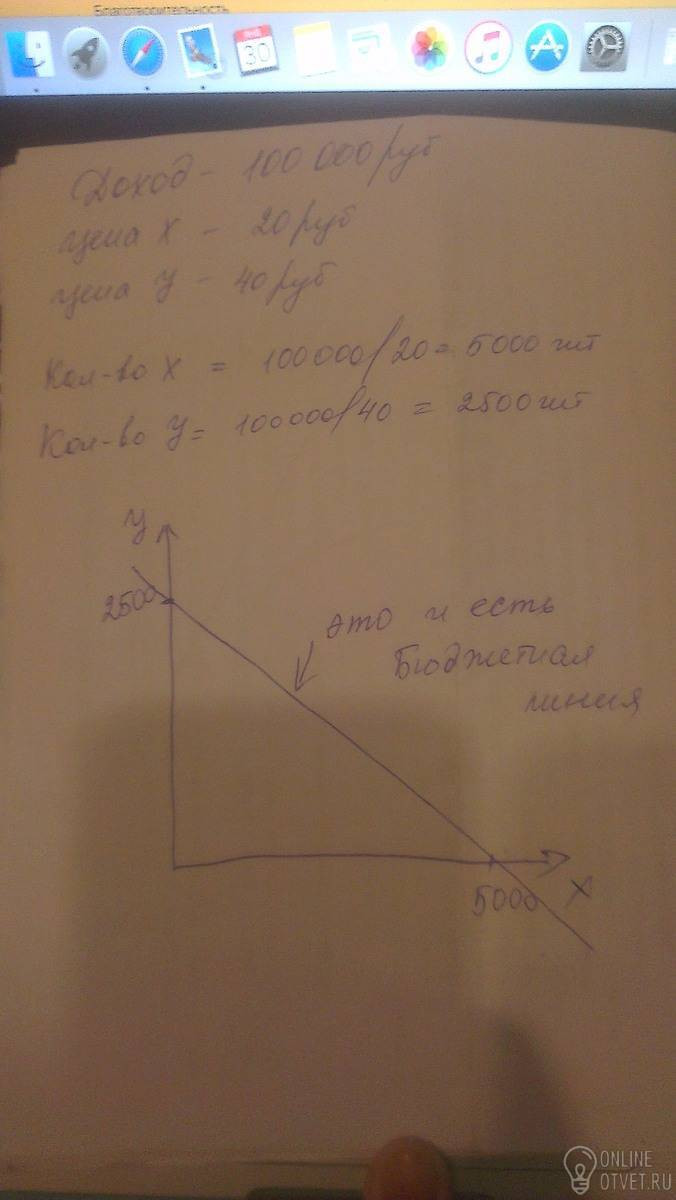 Благотворительность
30
Доход - 100 000 руб
цена X - 20 руб
цена y - 40 руб
Кол-во X = 100000/20 = 5000 шт
Кол-во y = 100000/40 = 2500 шт
y
2500
это и есть
Бюджетная
линия
5000
X
ONLINE
OTVET.RU